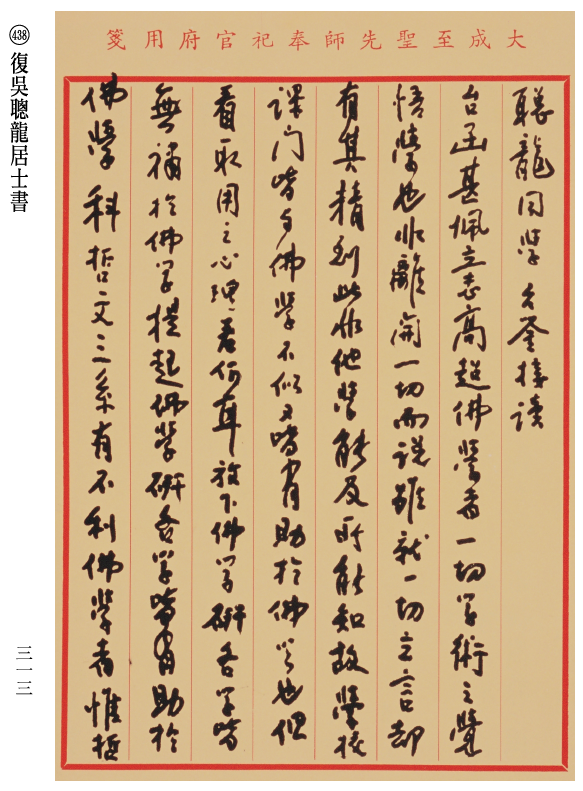 大成至聖先師奉祀官府用箋
438 復吳聰龍居士書
聰龍同學台鑒接讀
台函甚佩立志高超佛學者一切學術之覺
悟學也非離開一切而說雖就一切立言却
有其精到此非他學能及所能知故學校
課門皆與佛學不似又皆有助於佛學也但
看取用之心理若何耳放下佛學研各學皆
無補於佛學提起佛學研各學皆有助於
佛學科哲文三系有不利佛學者惟哲
三一三